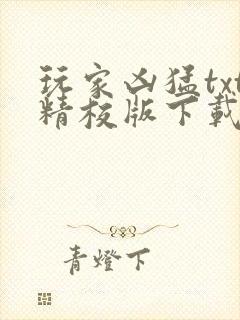 玩家凶猛txt
精校版下載
青燈下